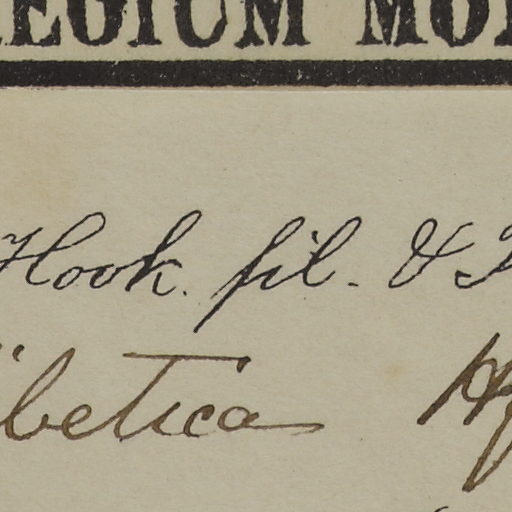 REGIUM MO
Hook. fil. & T
ibetica Hf